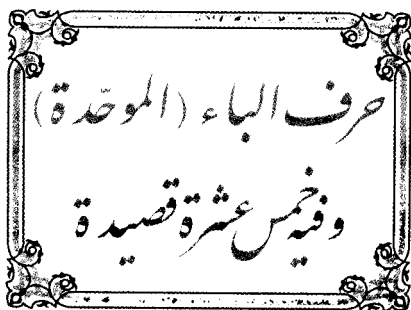 حرف الباء (الموحّدة)
وفيه خمس عشرة قصيدة